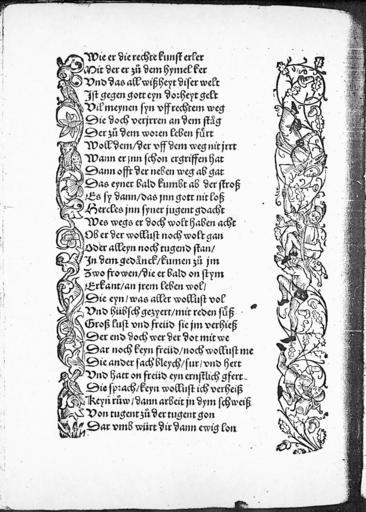 Wie er die rechte kunst erler
Mit der er zů dem hymel ker
Vnd das all wißheyt diser welt
Ist gegen gott eyn dorheyt gelt
Vil meynen syn vff rechtem weg
Die doch verjrren an dem stäg
Der zů dem woren leben fůrt
Woll dem/der vff dem weg nit jrrt
Wann er jnn schon ergriffen hat
Dann offt der neben weg ab gat
Das eyner bald kumbt ab der stroß
Es sy dann/das jnn gott nit loß
Hercles jnn syner jugent gdacht
Wes wegs er doch wolt haben acht
Ob er der wollust noch wolt gan
Oder alleyn noch tugend stan/
In dem gedänck/kumen zů jm
Zwo frowen/die er bald on stym
Erkant/an jrem leben wol/
Die eyn/was aller wollust vol
Vnd hübsch gezyert/mit reden sůß
Groß lust vnd freüd sie jm verhieß
Der end doch wer der dot mit we
Dar noch keyn freüd/noch wollust me
Die ander sach bleych/sur/vnd hert
Vnd hatt on freüd eyn ernstlich gfert
Die sprach/keyn wollust ich verheiß
Keyn růw/dann arbeit jn dym schweiß
Von tugent zů der tugent gon
Dar vmb würt dir dann ewig lon